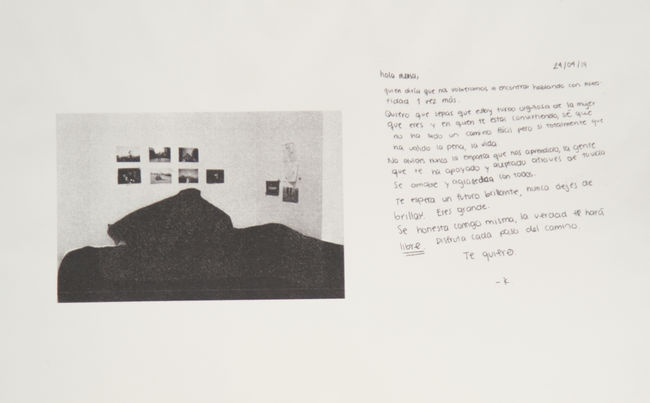 29/09/19
hola nena,
quien diría que nos volveríamos a encontrar hablando con
ridad 1 vez más.
Quiero que sepas que estoy tan orgullosa de la mujer
que eres y en quien te estás convirtiendo, sé que
no ha sido un camino fácil pero si totalmente que
ha valido la pena, la vida.
No olvides nunca la empatía que has aprendido, la gente
que te ha apoyado y aceptado através de tu vida
Se amable y agradecida con todos.
Te espera un futuro brillante, nunca dejes de
brillar. Eres grande.
Sé honesta contigo misma, la verdad te hará
libre. Disfruta cada paso del camino.
Te quiero.
- K